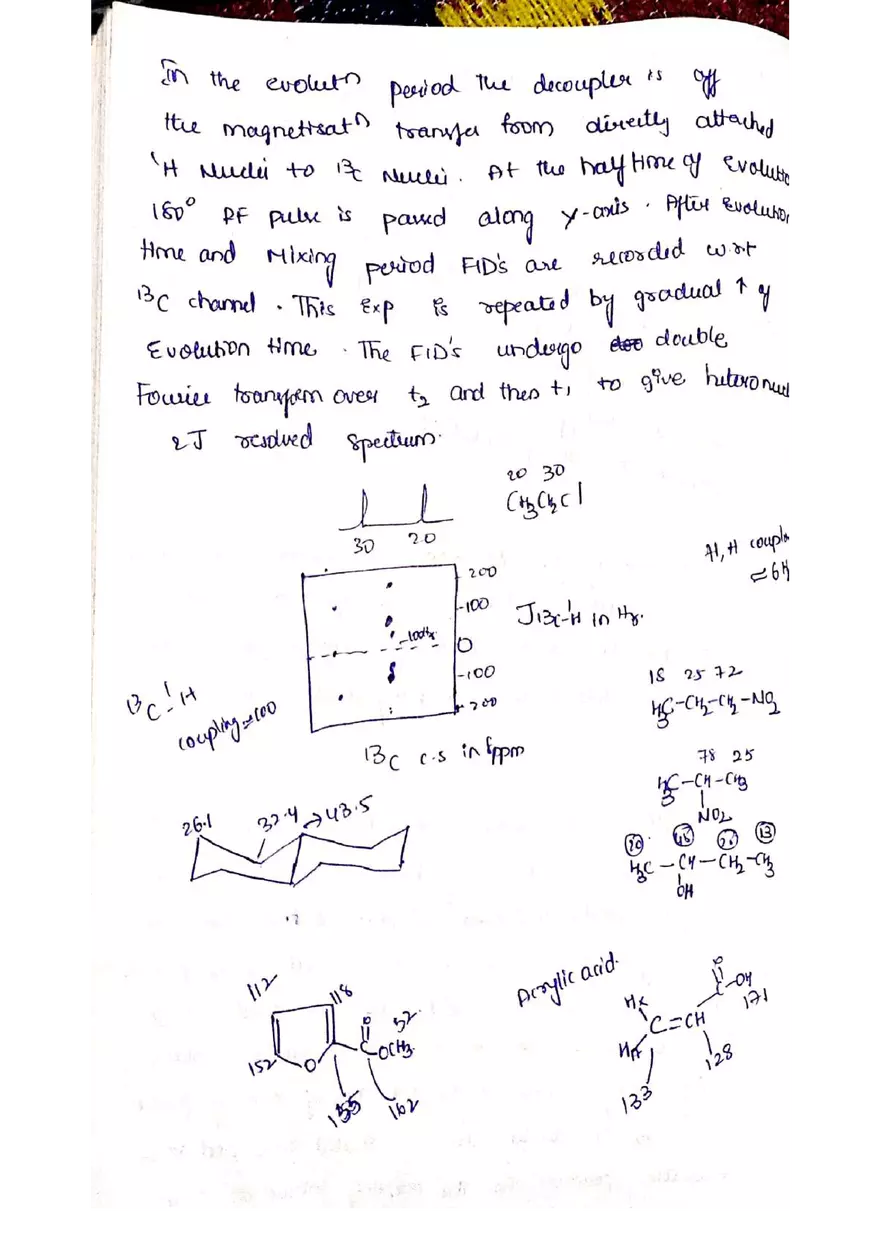 In the evolutn period the decoupler is off
the magnetisatn transfer from directly attached
1H Nuclei to 13C Nuclei. At the half time of Evolutio
180° RF pulse is passed along y-axis. After Evolution
time and Mixing period FID's are recorded w.r.t
13C channel. This Exp is repeated by gradual ↑ of
Evolution time. The FID's undergo double
Fourier transform over t2 and then t1 to give heteronucl
2J resolved Spectrum.
20 30
CH3CH2Cl
30 20
H,H coupl
≈6H
200
-100
-100Hz
0
-100
-200
J13C-1H in Hz.
13C-1H
coupling≈100
13C c.s in δppm
18 25 72
H3C-CH2-CH2-NO2
78 25
H3C-CH-CH3
NO2
26.1 32.4 →43.5
H3C-CH-CH2-CH3
OH
112 118
O 52
C-OCH3
152 O
155 162
Acrylic acid.
O
C-OH
171
C=CH
133 128